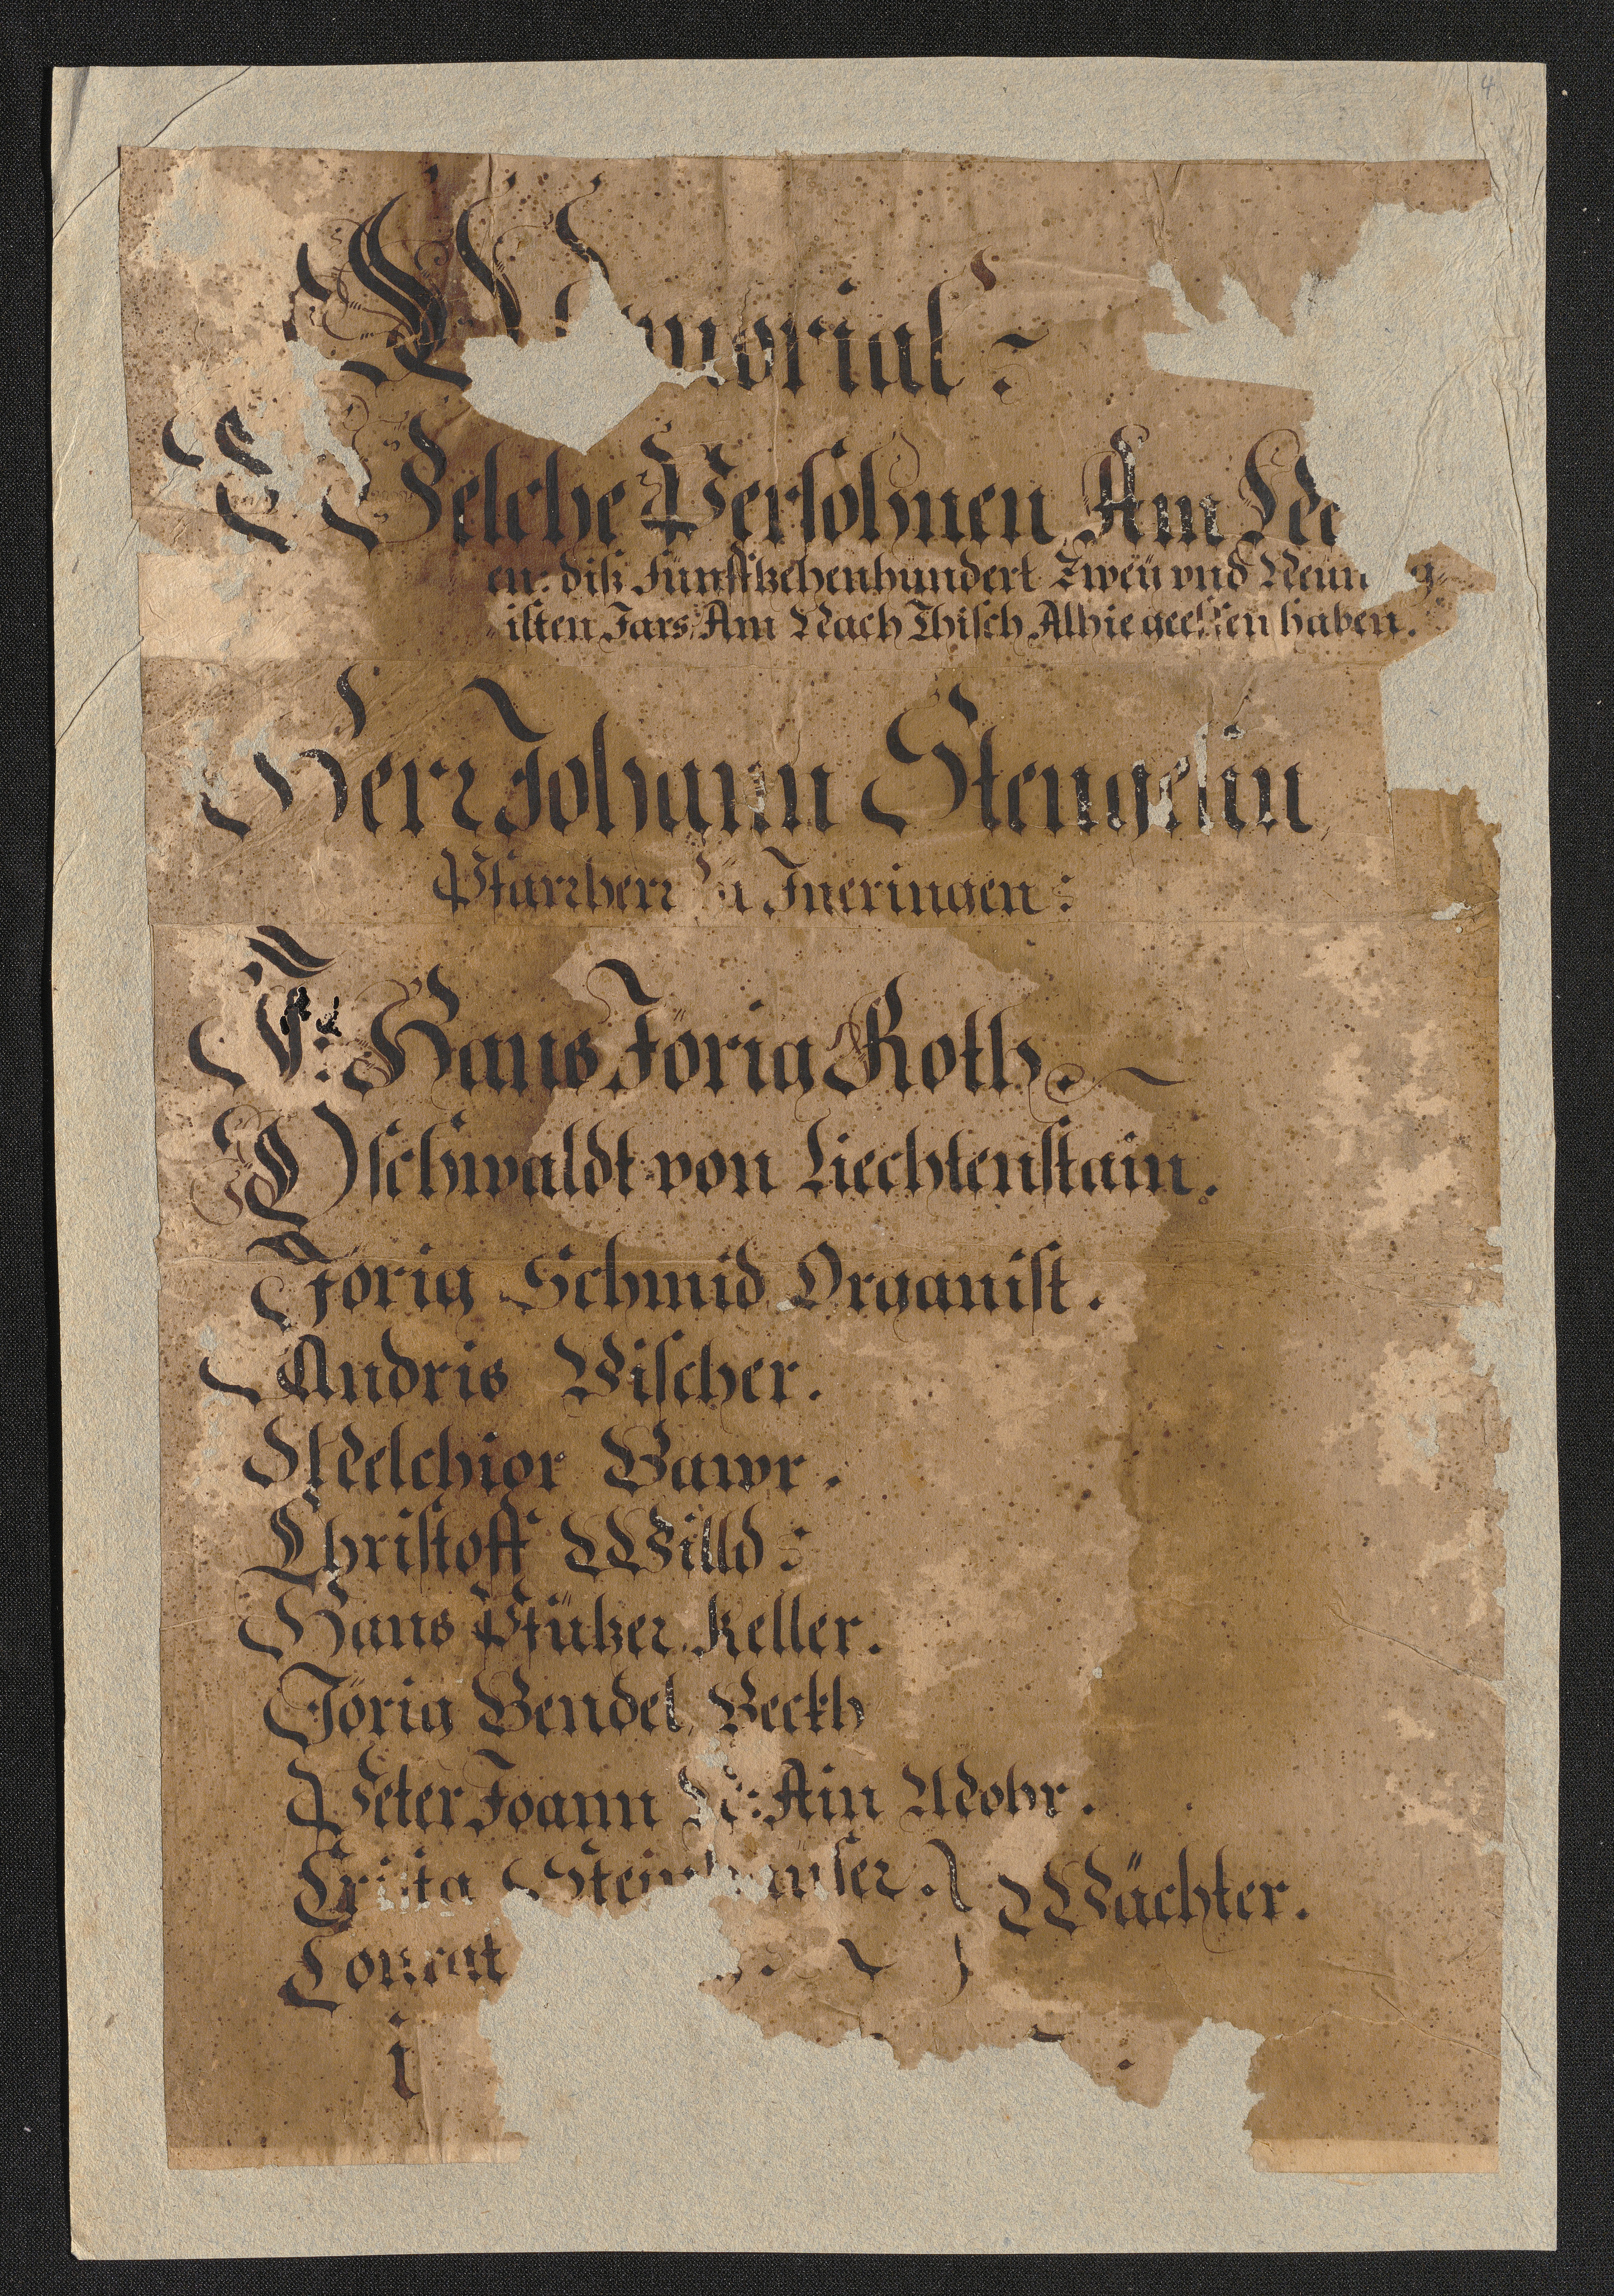 4
Memorial:
Welche Persohnen Am
diß Fünfftzehenhundert Zweÿ vnd
isten Jars Am Nach Thisch Alhie geessen haben.
Herr Johann Stengelin
Pfarrherr zu Ineringen:
F: Hans Jörig Roth.
Oschwaldt von Liechtenstain.
Jörig Schmid Organist.
Andris Vischer.
Melchior Bawr.
Christoff Willd:
Hans Pfützer Keller.
Jörig Bendel, Beckh
Peter Joann Ain Mohr.
Wächter.
Conrat
i